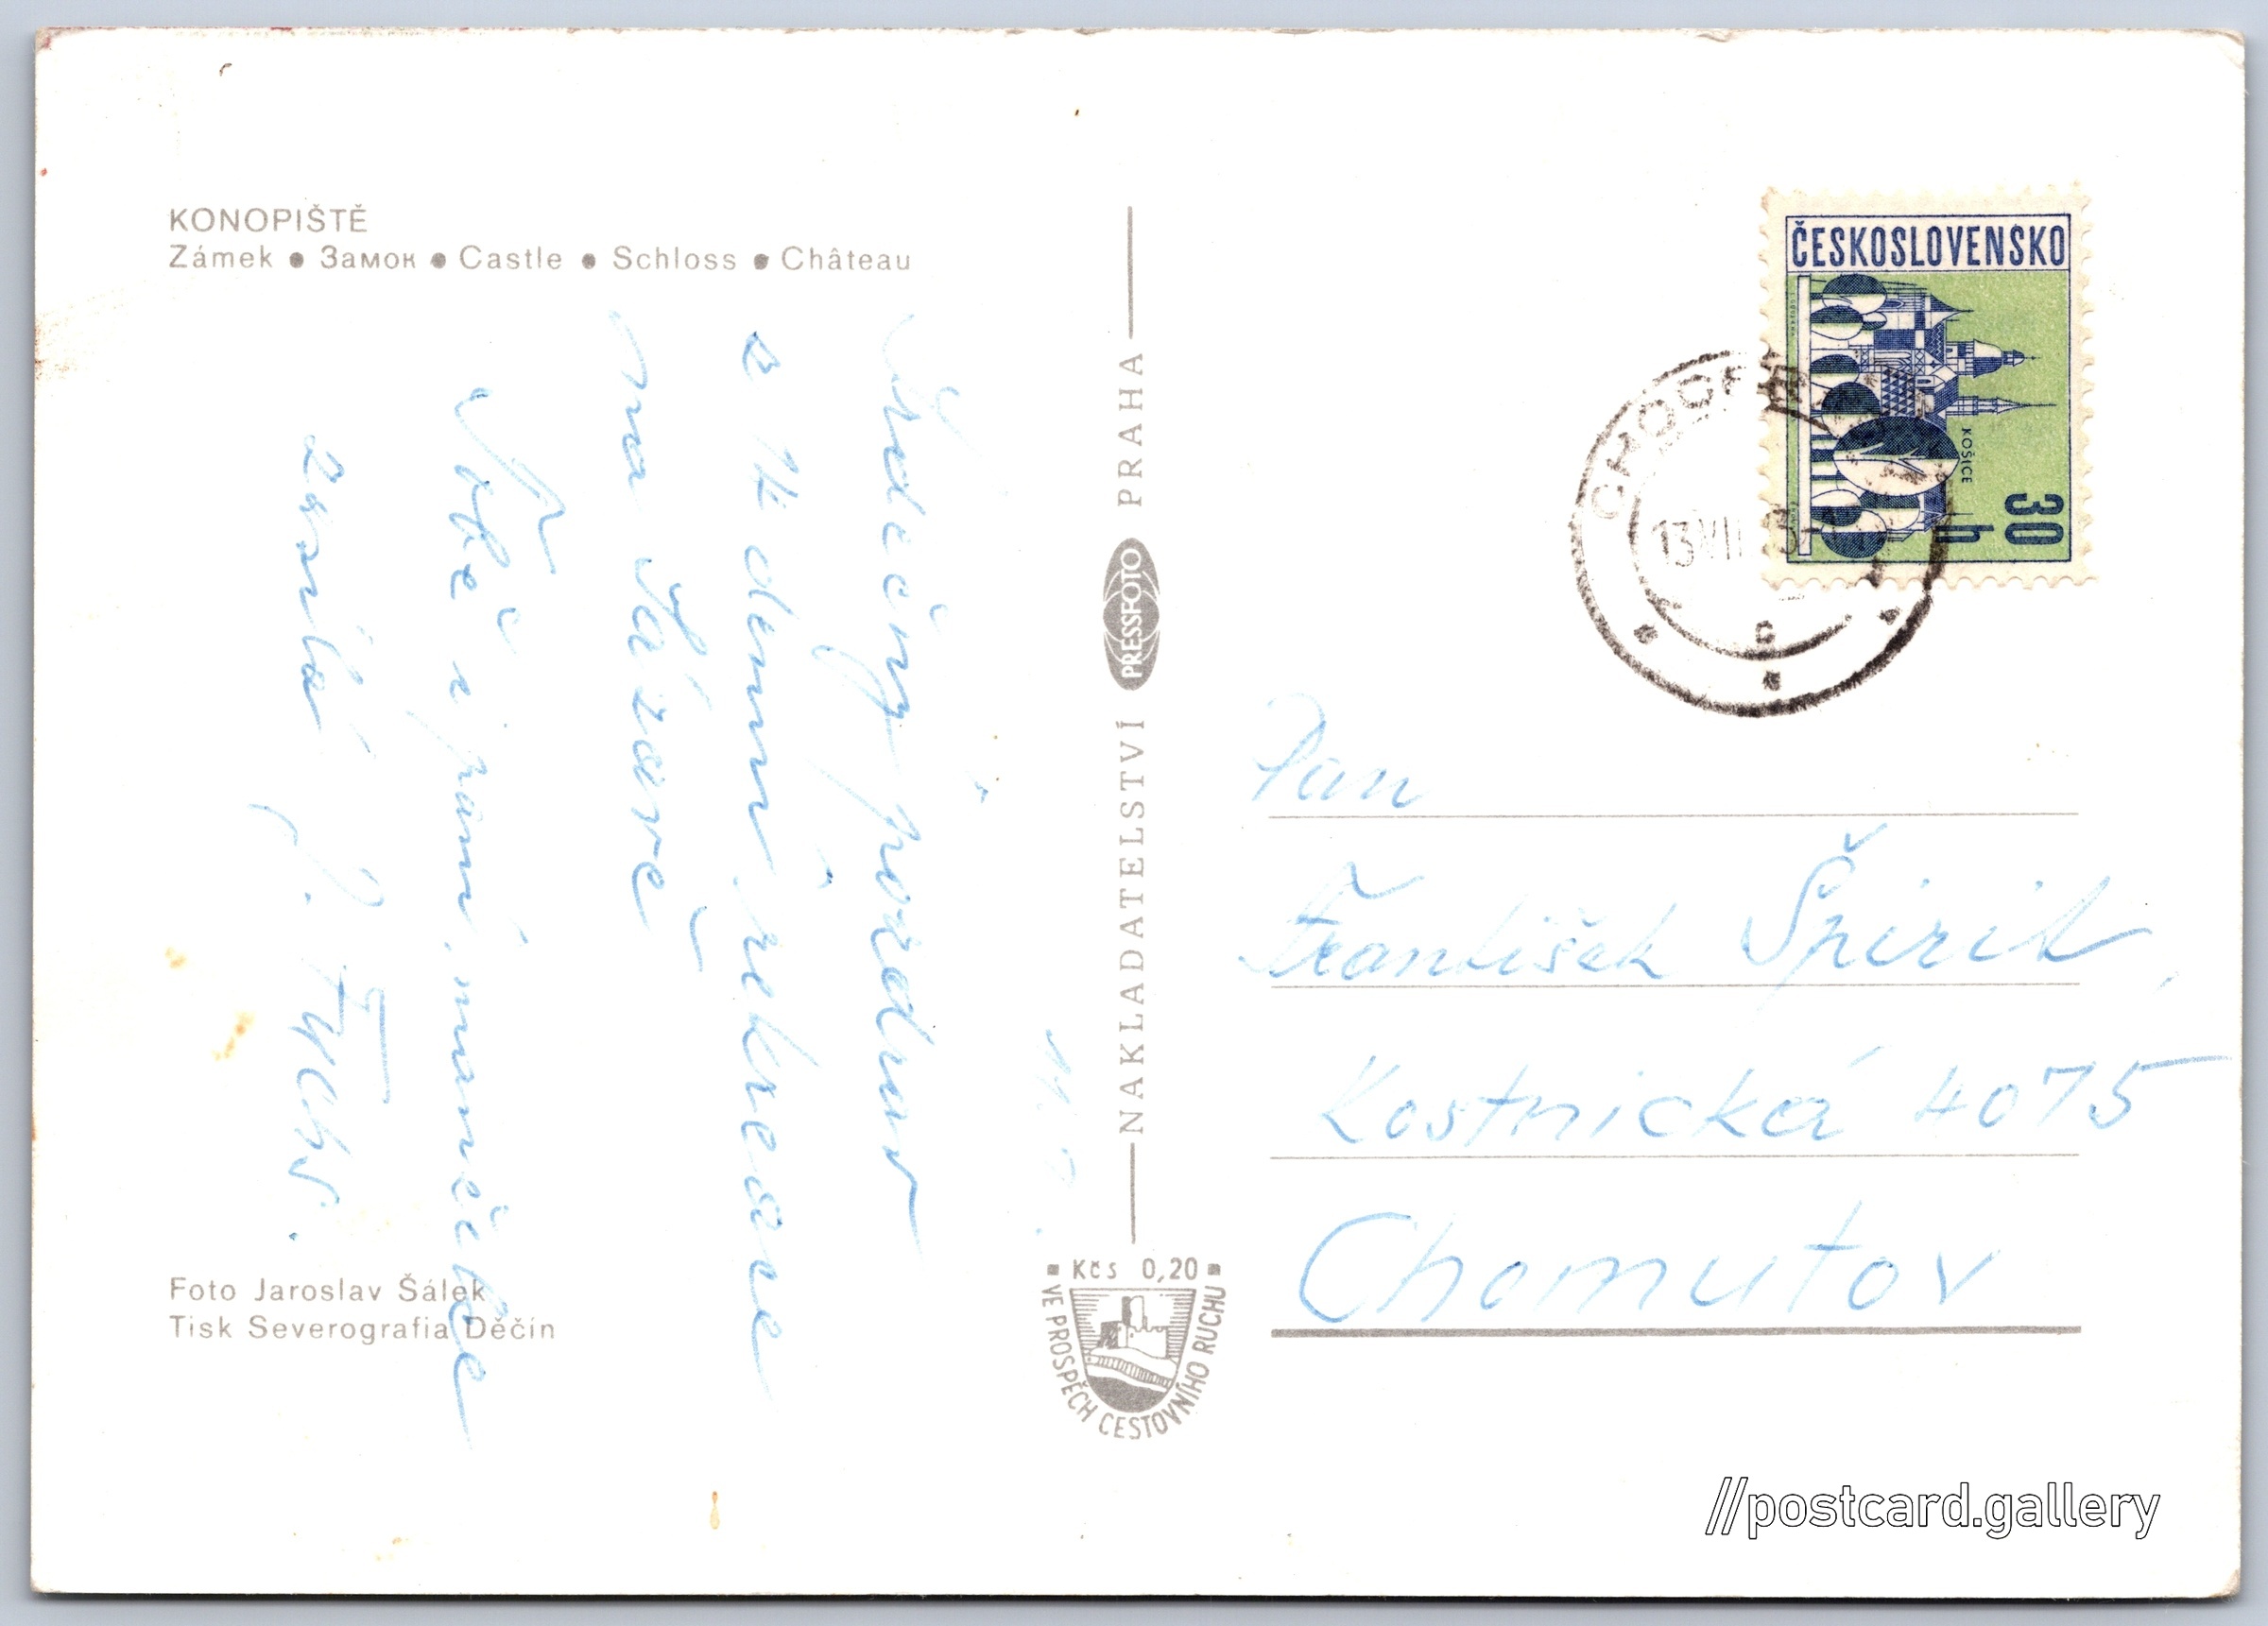 KONOPIŠTĚ
Zámek • Замок • Castle • Schloss • Château
Srdečný pozdrav
14 denní rekreace
na Sázavě
Vítě a paní, manželce
zasílá
J. Fuchs.
Foto Jaroslav Šálek
Tisk Severografia Děčín
NAKLADATELSTVÍ PRESSFOTO PRAHA
Kčs 0,20
VE PROSPĚCH CESTOVNÍHO RUCHU
ČESKOSLOVENSKO
KOŠICE
30 h
13.VII
C
Pan
František Špirit,
Kostnická 4075
Chomutov
//postcard.gallery